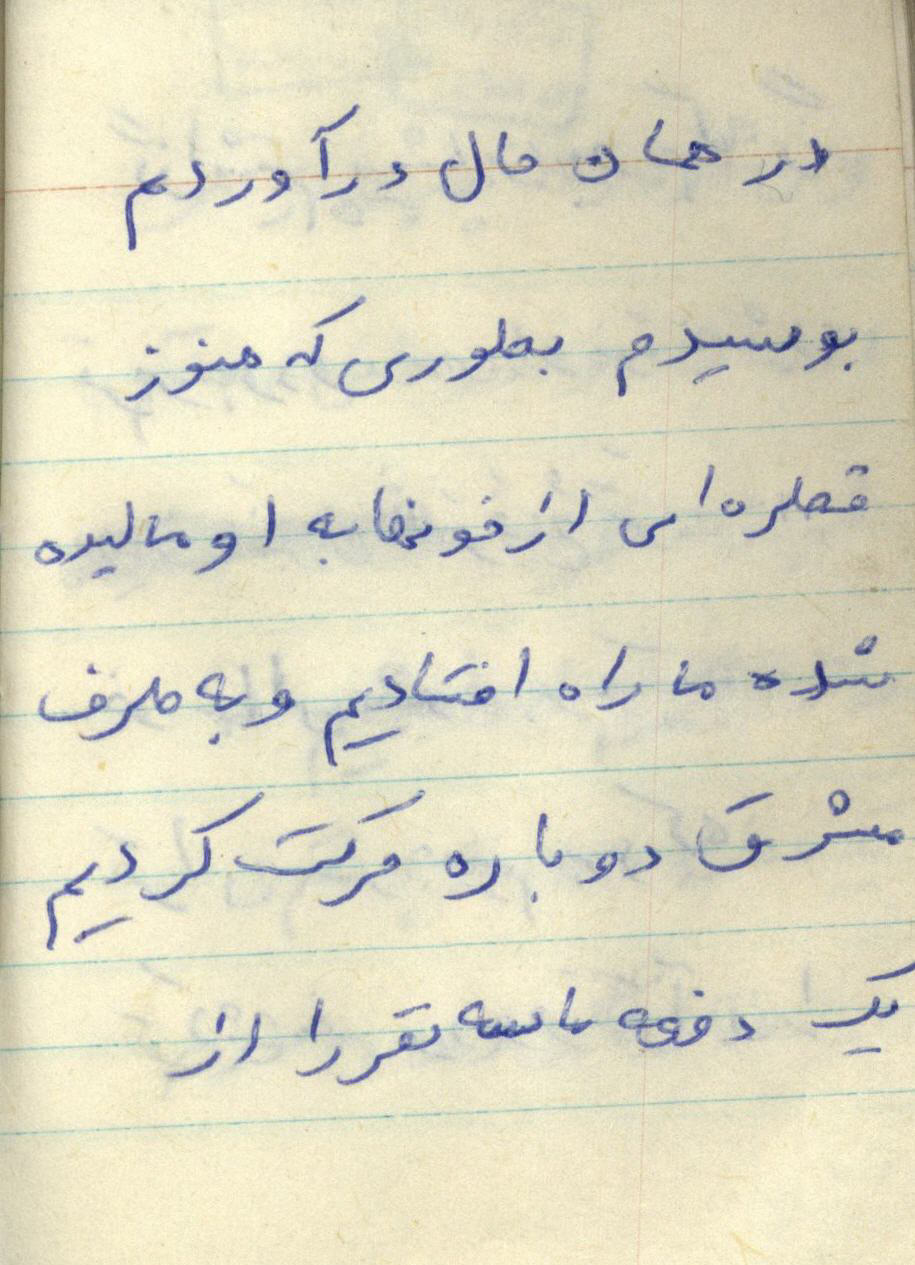 در همان حال درآوردم
بوسیدم بطوری که هنوز
قطره ای از خونها به او مالیده
شده ما راه افتادیم و به طرف
مشرق دوباره حرکت کردیم
یک دفعه ما سه نفر را از